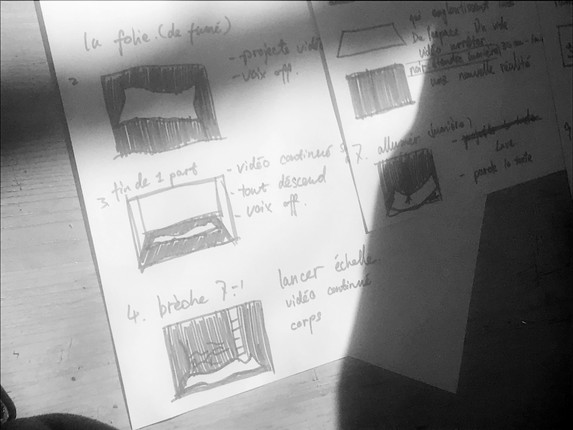 la folie. (de fumé)
2
- projecte vidé
- voix off.
3. fin de 1 part
- vidéo continué
- tout déscend
- voix off.
4. brèche 7:1
lancer échelle
vidéo continué
corps
qui
De l'espace Du vide.
vidéo
une nouvelle réalité
7. allumer lumière)
- parole la suite